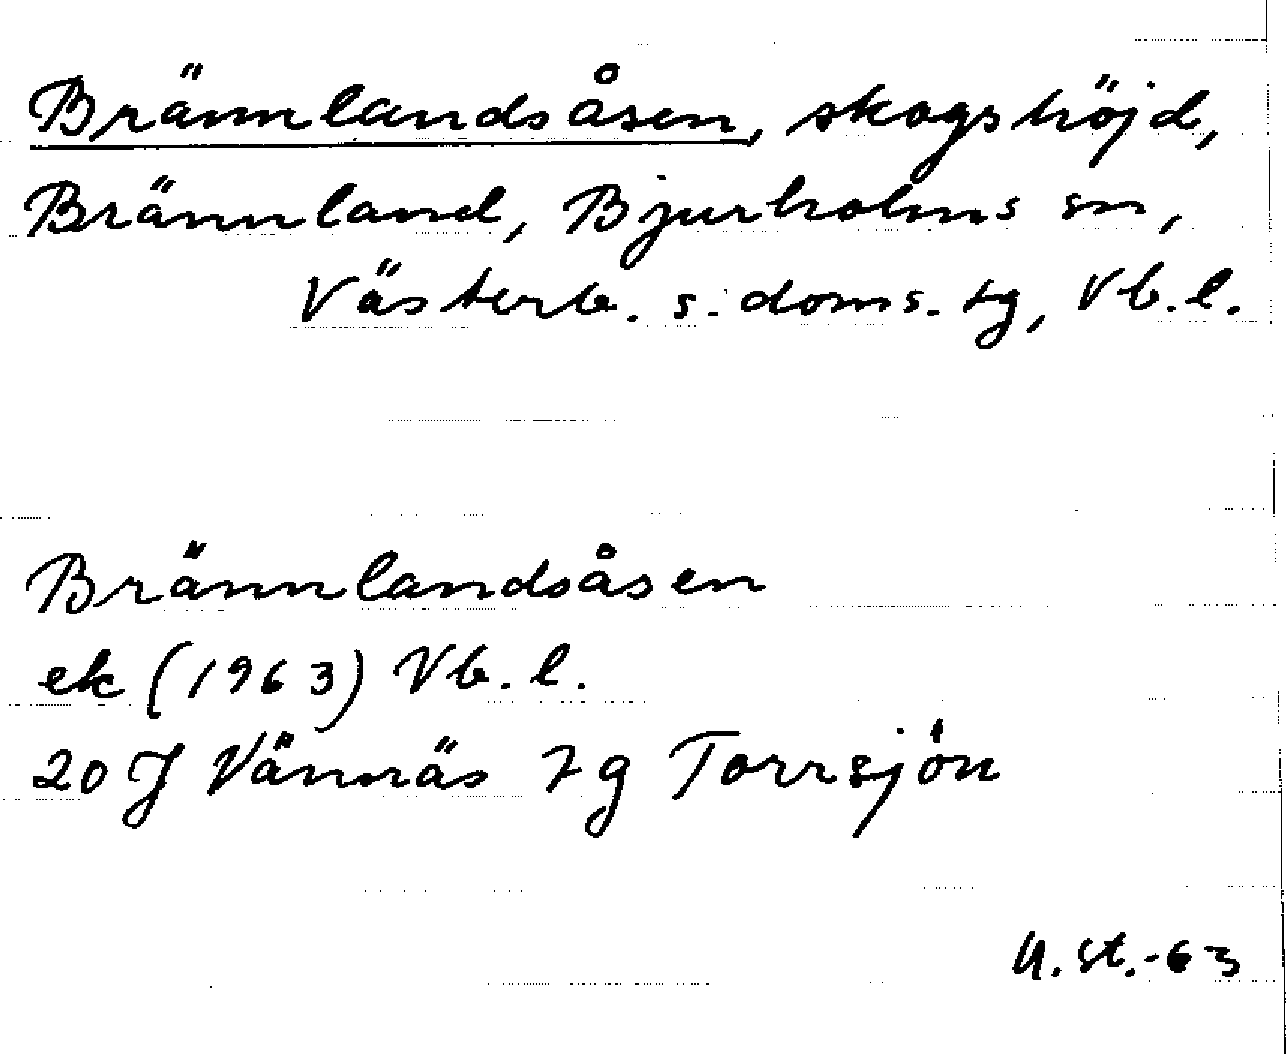 Brännlandsåsen, skogshöjd,
Brännland, Bjurholms sn,
Västerb. s. doms. tg, Vb. l.
Brännlandsåsen
ek (1963) Vb. l.
20 J Vännäs 7g Torrsjön
U. St. -63